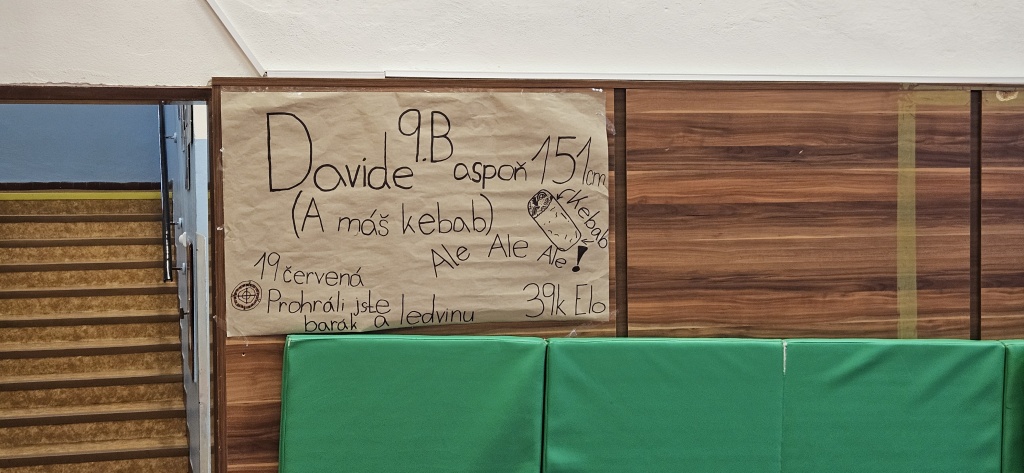 9.B
Davide aspoň 151cm
(A máš kebab)
Kebab
Ale Ale Ale!
19 červená
Prohráli jste
barák a ledvinu
39k Elo